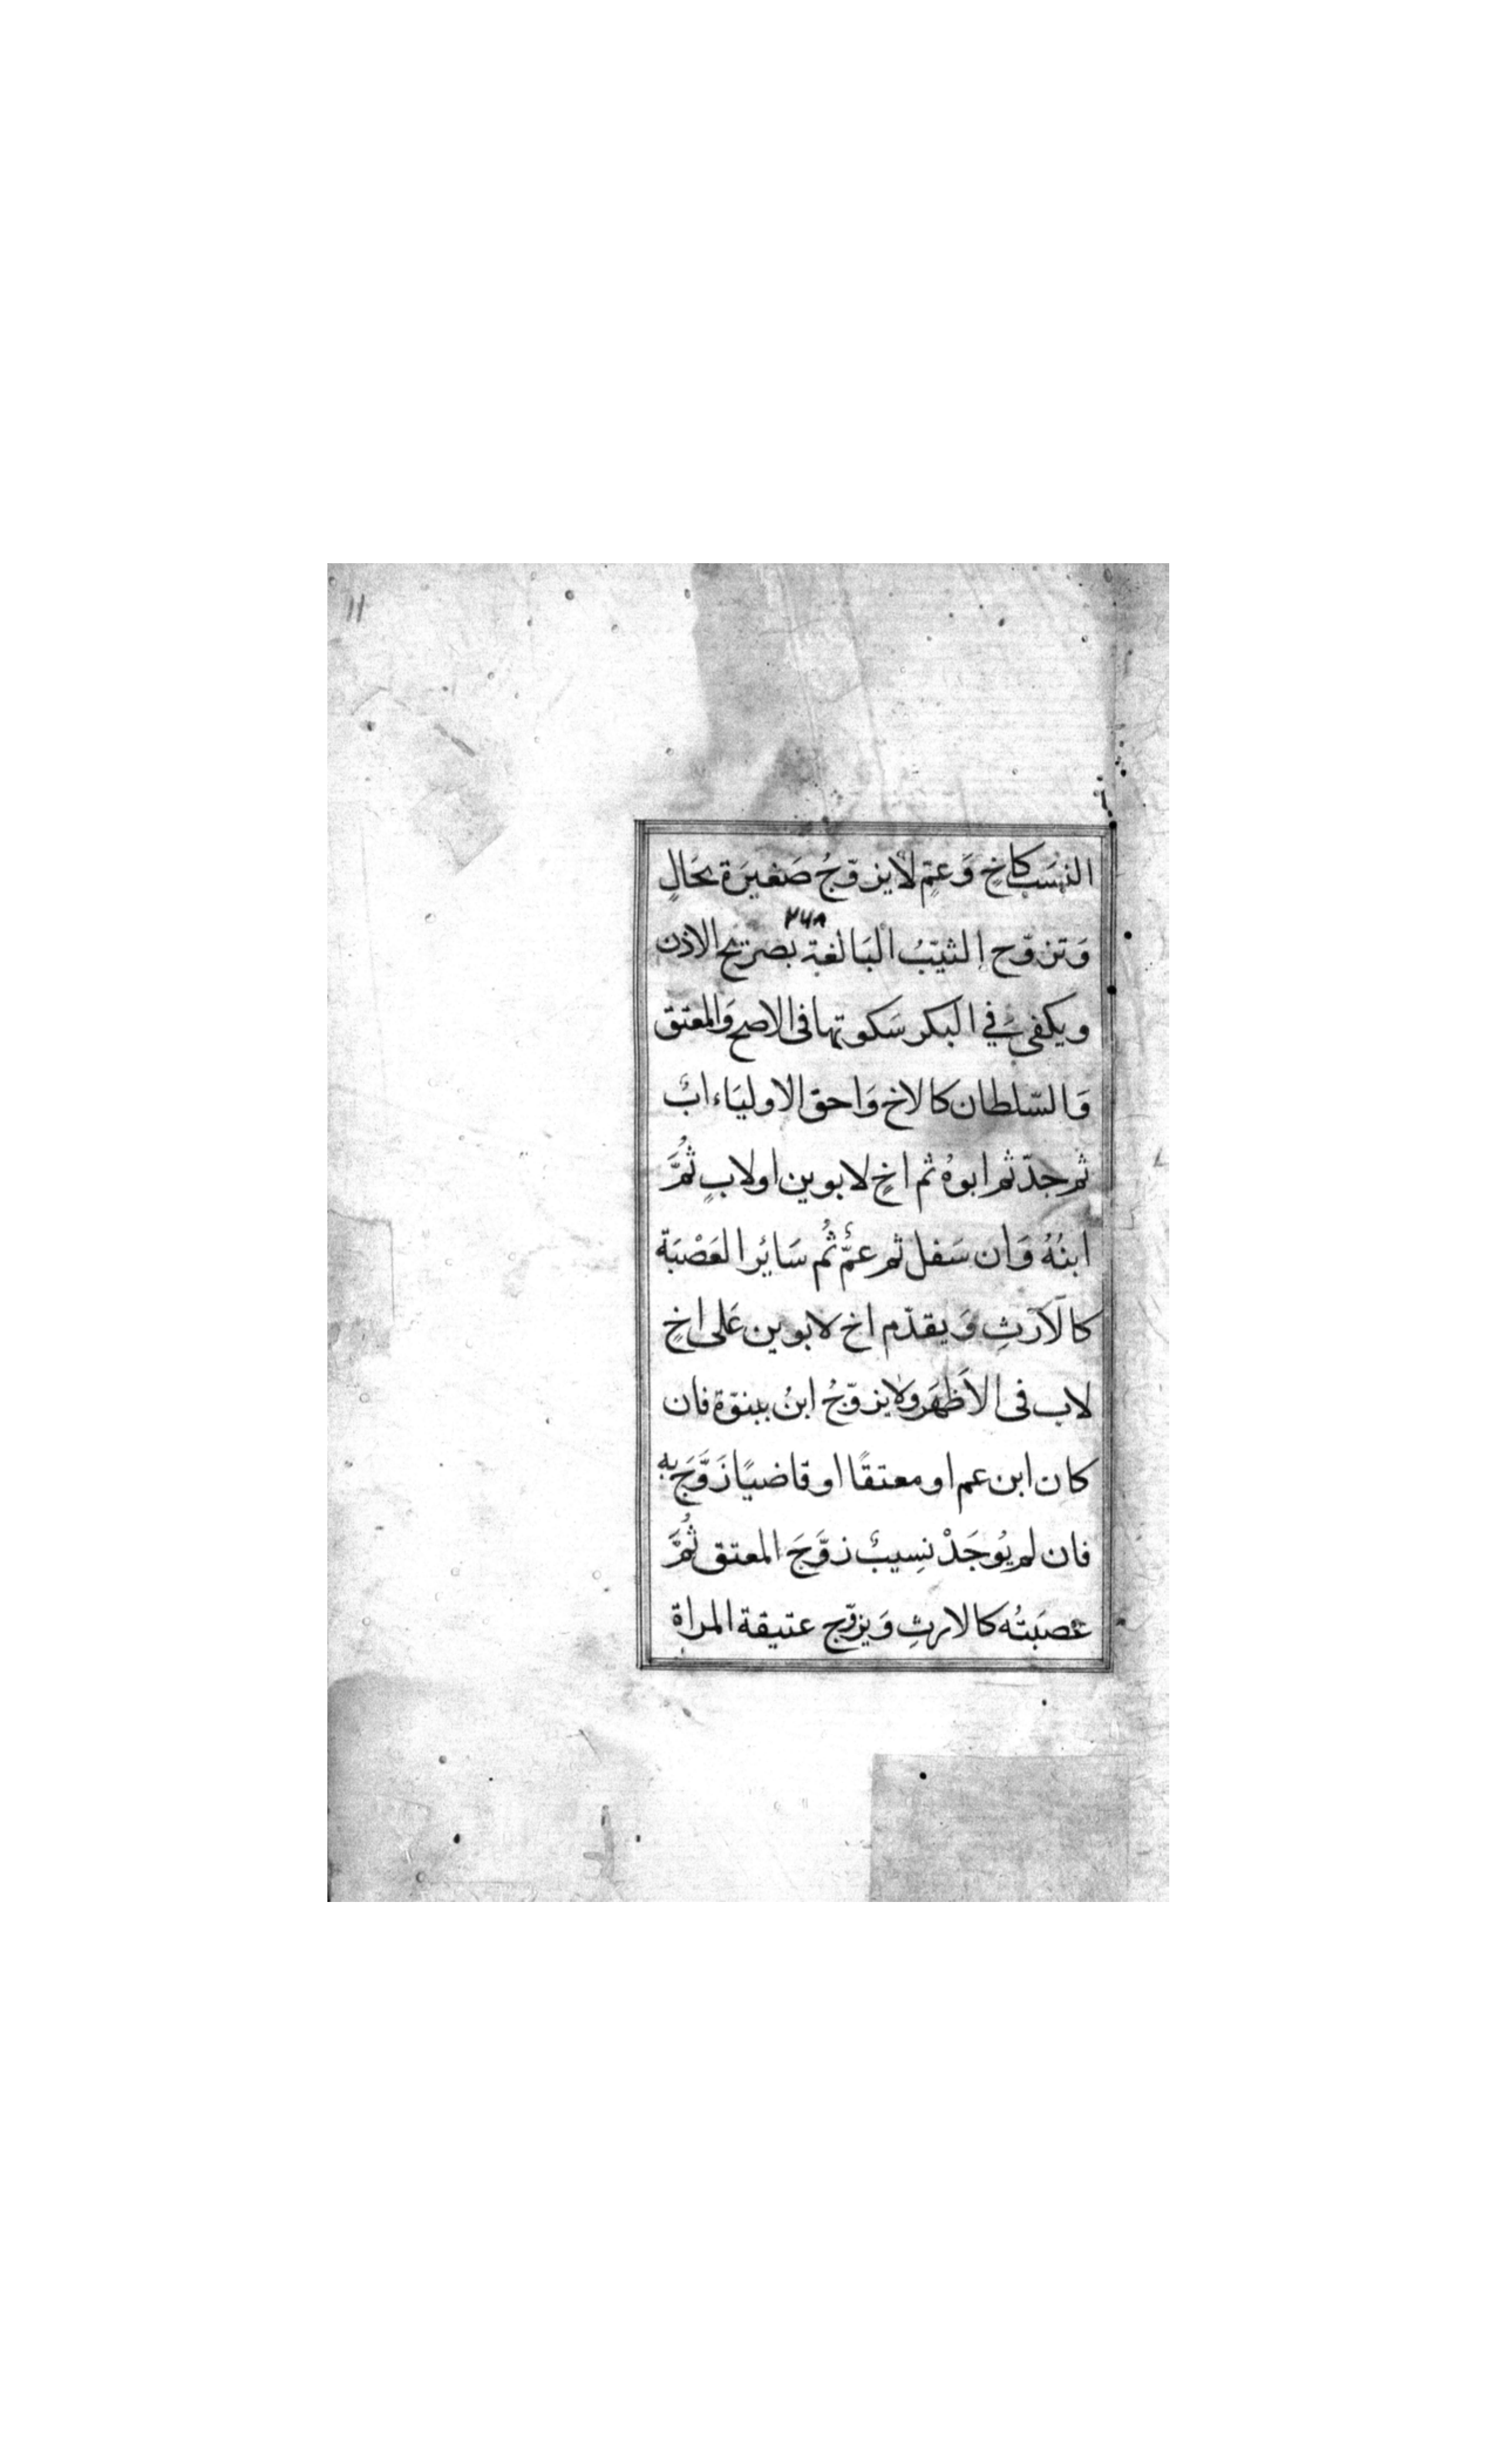 11
النسَب كاخٍ وَعمٍّ لا يزوّجُ صَغيَرة بحَالٍ
٢٤٨
وَتزوّج الثيّبُ البَالغة بصَريح الاذن
ويكفىِ في البكر سَكوتها فى الاصح وَالمعتق
وَالسّلطان كالاخ وَاحق الاوليَاء ابٌ
ثم جدّ ثم ابوهُ ثم اخٍ لابوين اولابٍ ثُمَّ
ابنُهُ وَان سَفل ثم عمٌّ ثُم سَائِر العَصْبَة
كالآرثِ وَيقدّم اخ لابوين عَلى اخٍ
لاب فى الاَظهَر ولا يزوّجُ ابنُ ببنوّة فان
كان ابن عم او معتقًا او قاضيًا زَوَّجَ به
فان لم يُوجَدْ نسِيبٌ زوَّجَ المعتق ثُمَّ
عصَبتُه كالارثِ وَيزوّج عتيقة المراة